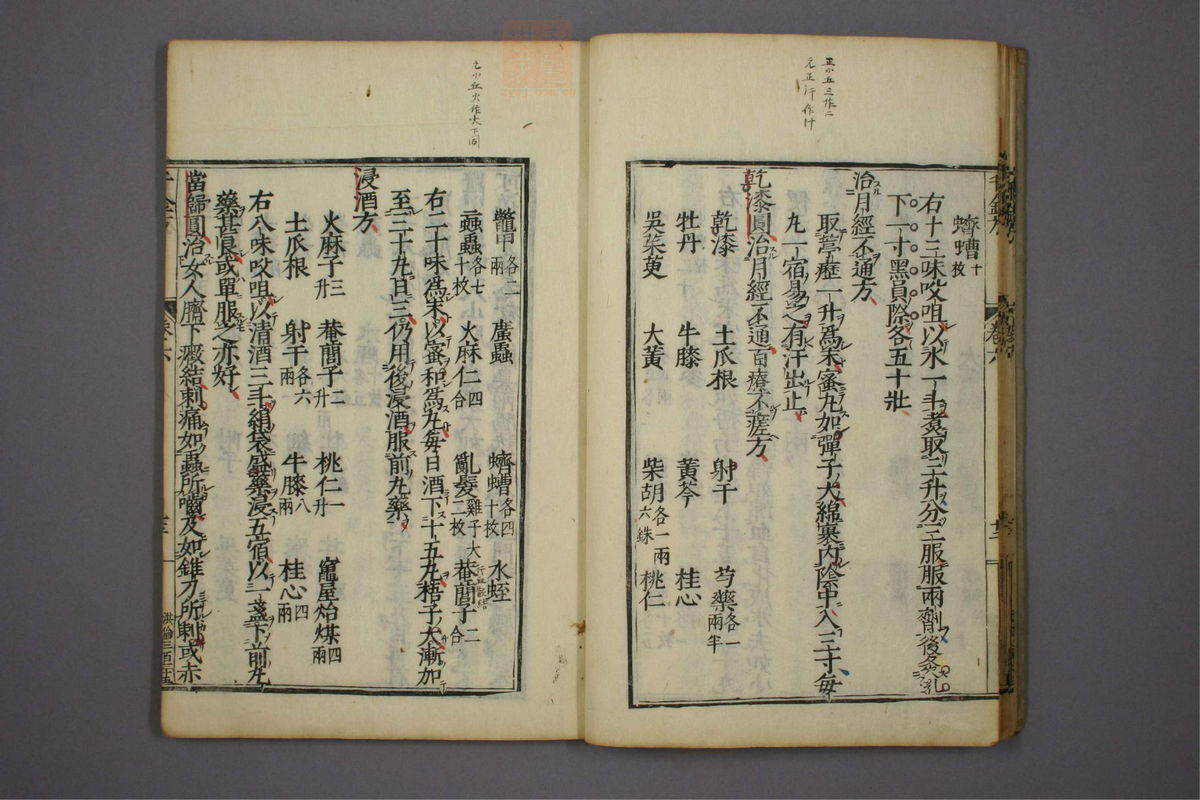 蠐螬十枚
右十三味㕮咀以水一斗煮取三升分三服服兩劑後灸乳
下一寸黑員際各五十壯
治月經不通方
取葶藶一升為末蜜丸如彈子大綿裹內陰中入三寸每
丸一宿易之有汗出止
乾漆圓治月經不通百療不瘥方
乾漆 土瓜根 射干 芍藥各一兩半
牡丹 牛膝 黃芩 桂心
吳茱萸 大黃 柴胡各一兩六銖 桃仁
鼈甲各二兩 䗪蟲 蠐螬各四十枚 水蛭
蝱蟲各七十枚 火麻仁四合 亂髮雞子大二枚 菴䕡子二合
右二十味為末以蜜和為丸每日酒下十五丸梧子大漸加
至三十丸日三仍用後浸酒服前丸藥
浸酒方
火麻子三升 菴䕡子二升 桃仁一升 竈屋炲煤四兩
土瓜根 射干各六兩 牛膝八兩 桂心四兩
右八味㕮咀以清酒三斗絹袋盛藥浸五宿以一盞下前丸
藥甚良或單服之亦好
當歸圓治女人臍下癥結刺痛如蟲所嚙及如錐刀所刺或赤